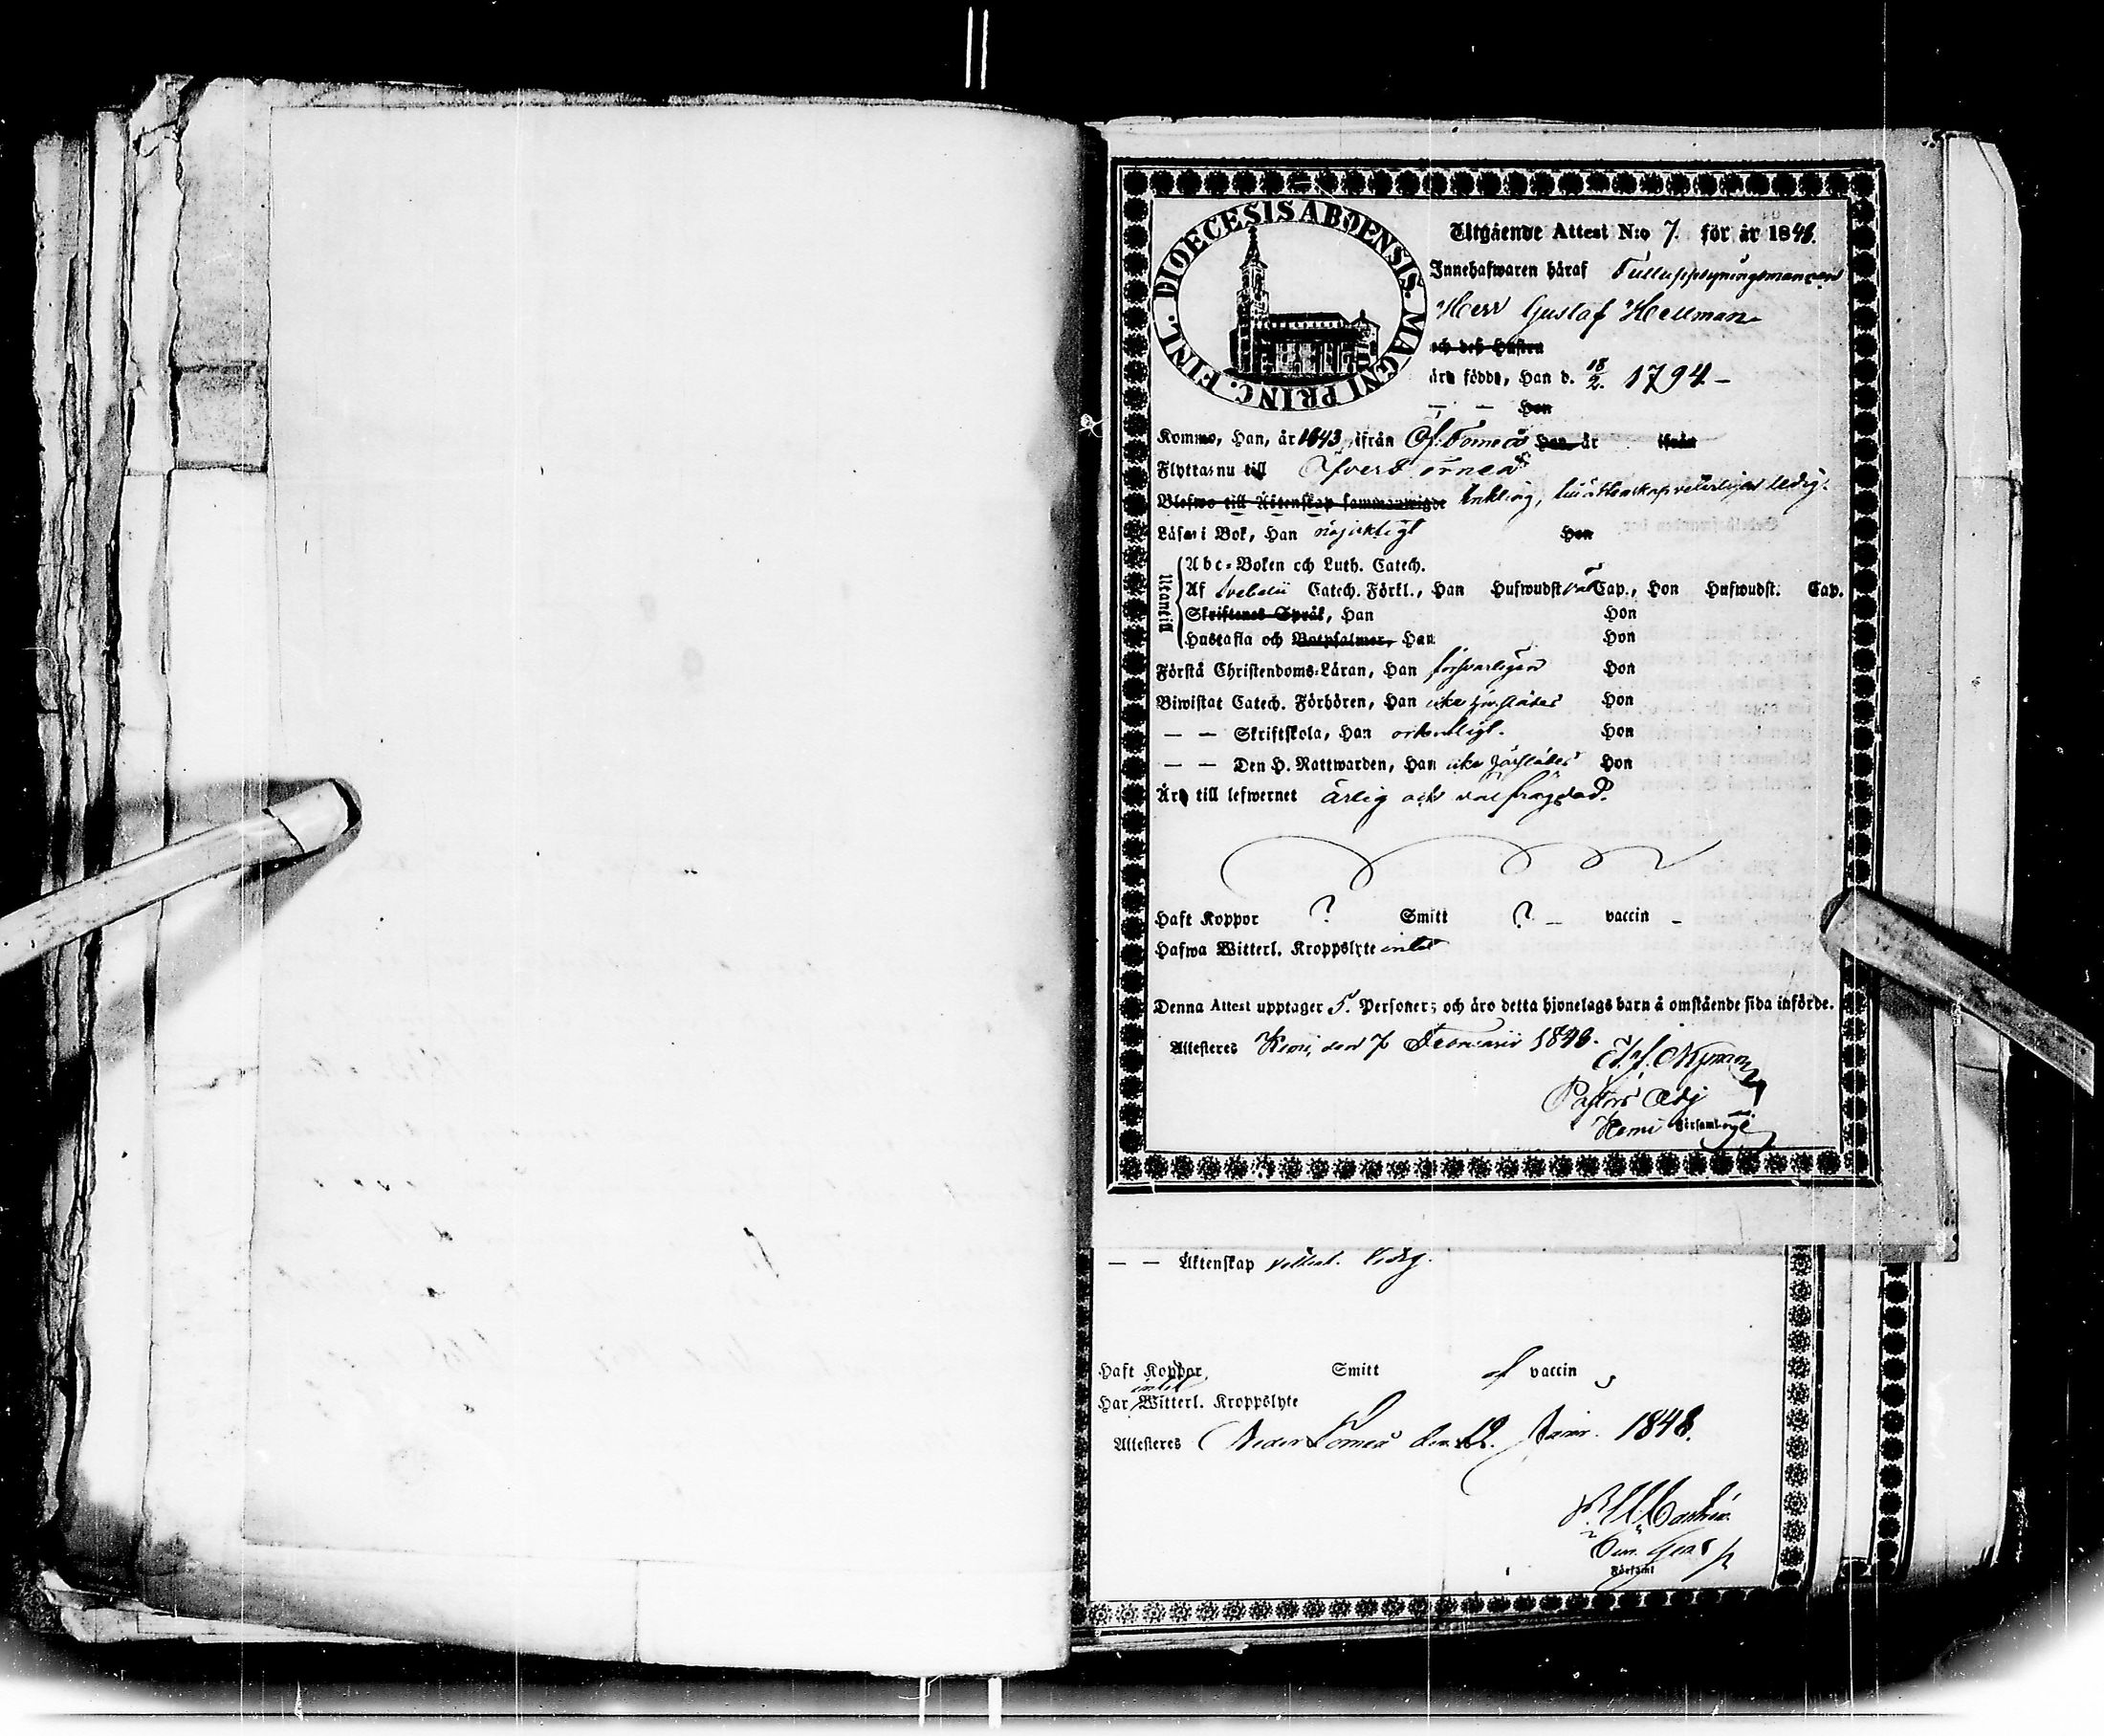 DIOECESIS ABOENSIS. MAGNI PRINC. FINL.
Utgående Attest N:o 7. för år 1848.
Innehafwaren häraf Tulluppsyningsmannen
Herr Gustaf Hellman
och deß Hustru
äro födde, Han d. 18/2. 1794 –
— — Hon
Kommo, Han, år 1843 ifrån Öf. Torneå Hon år ifrån
Flytta nu till Öfvertorneå
Blefwo till Äktenskap sammanwigde Enkling, till äktenskap veterligen ledig.
Läsa i Bok, Han nöjaktigt Hon
Utantill
Abc-Boken och Luth. Catech.
Af Svebelii Catech. Förkl., Han Hufwudst. Cap., Hon Hufwudst. Cap.
Skriftenes Språk, Han Hon
Hustafla och Botpsalmer, Han Hon
Förstå Christendoms-Läran, Han försvarligen Hon
Biwistat Catech. Förhören, Han icke förs Hon
— — Skriftskola, Han ordentligt. Hon
— — Den H. Nattwarden, Han icke Hon
Äro till lefwernet ärlig och välfrägdad.
Haft Koppor ? Smitt ? — vaccin –
Hafwa Witterl. Kroppslyte intet
Denna Attest upptager 5. Personer; och äro detta hjonelags barn å omstående sida införde.
Attesteres Kemi, den 7 Februarii 1848.
Nyman
Pastors Adj
Kemi Församling
— — Äktenskap vetterl. ledig.
Haft Koppor Smitt af vaccin
intet
Har Witterl. Kroppslyte
Attesteres Neder Torneå den 19. Janr. 1848.
Församl